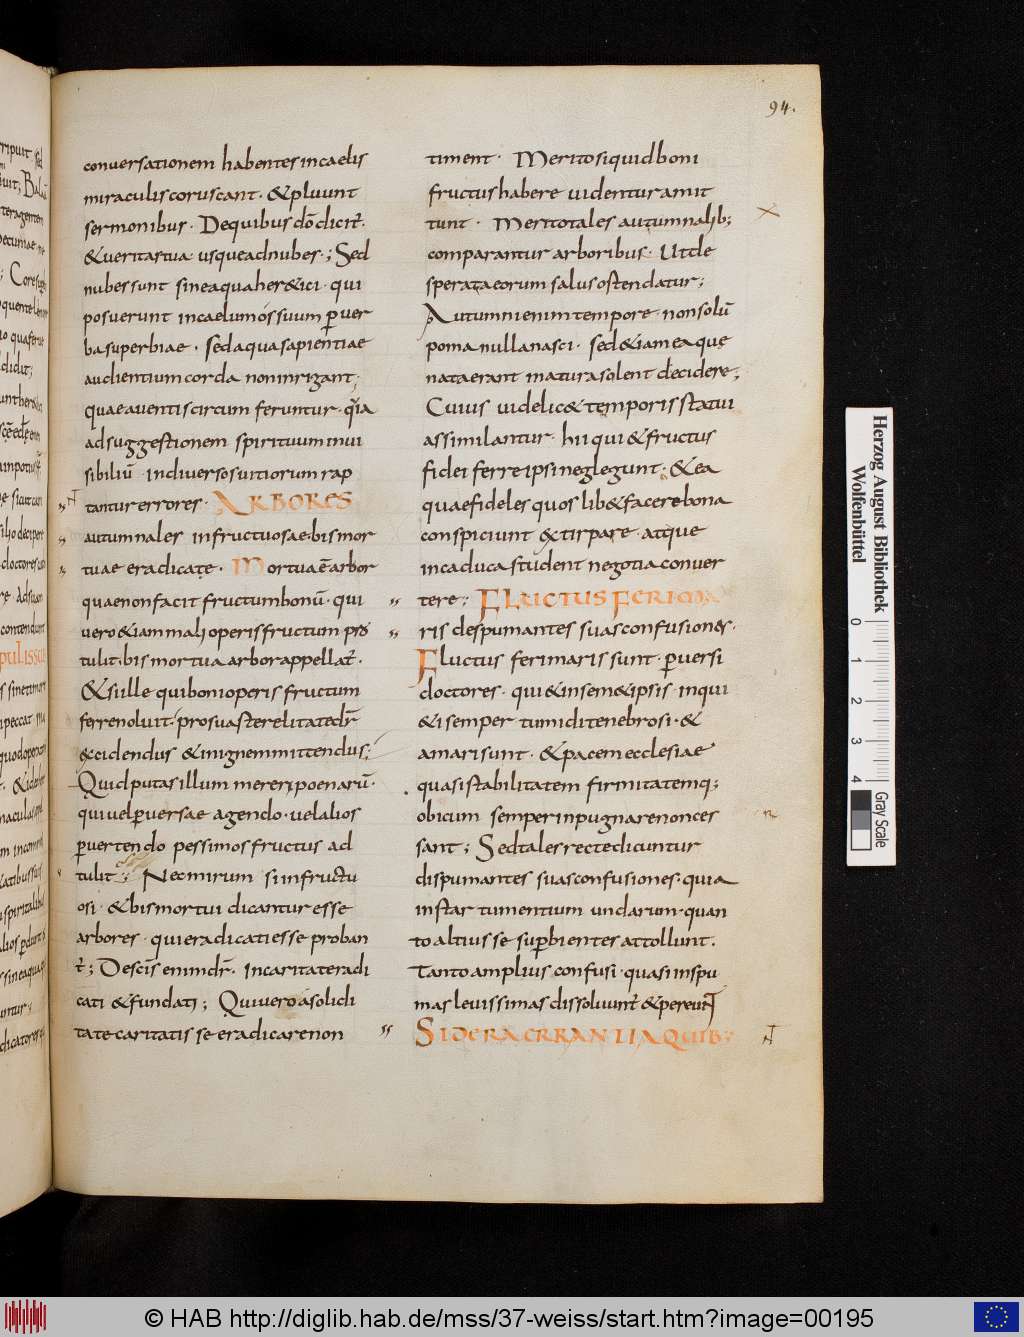 94.
conuersationem habentes in caelis
miraculis coruscant · & pluunt
sermonibus · De quibus dõ dicit̃ ·
& ueritas tua usque ad nubes · ; Sed
nubes sunt sine aqua her&ici · qui
posuerunt in caelum ós suum ꝑ uer
ba superbiae · sed aqua sapientiae
audientium corda non inrigant ;
quae a uentis circum feruntur · q̃a
ad suggestionem spirituum inui
sibiliũ in diuersos uitiorum rap
tantur errores · ARBORES
autumnales infructuosae · bis mor
tuae eradicatę · Mortua ẽ arbor
quae non facit fructum bonũ · qui
uero &iam mali operis fructum pro
tulit · bis mortua arbor appellat̃ ·
& si ille qui boni operis fructum
ferre noluit · pro sua sterelitate dr̃
excidendus & in ignem mittendus ;
Quid putas illum mereri poenarũ ·
qui uel ꝑuersae agendo · uel alios
ꝑuertendo pessimos fructus ad
tulit ; Nec mirum si infructu
osi · & bis mortui dicantur esse
arbores · qui eradicati esse proban
t̃ ; De sc̃is enim dr̃ · In caritate radi
cati & fundati ; Qui uero a solidi
tate caritatis se eradicare non
timent · Merito si quid boni
fructus habere uidentur amit
tunt · Merito tales autumnalib;
comparantur arboribus · Ut de
sperata eorum salus ostendatur ;
Autumni enim tempore · non solũ
poma nulla nasci · sed &iam ea quę
nata erant matura solent decidere ;
Cuius uidelic& temporis statui
assimilantur · hii qui & fructus
fidei ferre ipsi neglegunt · & ea
quae fideles quos lib& facere bona
conspiciunt extirpare · atque
in caduca student negotia conuer
tere ; FLUCTUS FERI MA
ris despumantes suas confusiones ·
Fluctus feri maris sunt · ꝑuersi
doctores · qui & in sem&ipsis · inqui
&i semper tumidi tenebrosi · &
amari sunt · & pacem ecclesiae
quasi stabilitatem firmitatemq;
obicum semper inpugnare non ces
sant ; Sed tales recte dicuntur
dispumantes suas confusiones · quia
instar tumentium undarum · quan
to altius se suꝑbientes attollunt ·
Tanto amplius confusi · quasi in spu
mas leuissimas dissoluunt̃ & pereunt
SIDERA ERRANTIA QUIB;
Herzog August Bibliothek
Wolfenbüttel
0 1 2 3 4
Gray Scale
© HAB http://diglib.hab.de/mss/37-weiss/start.htm?image=00195